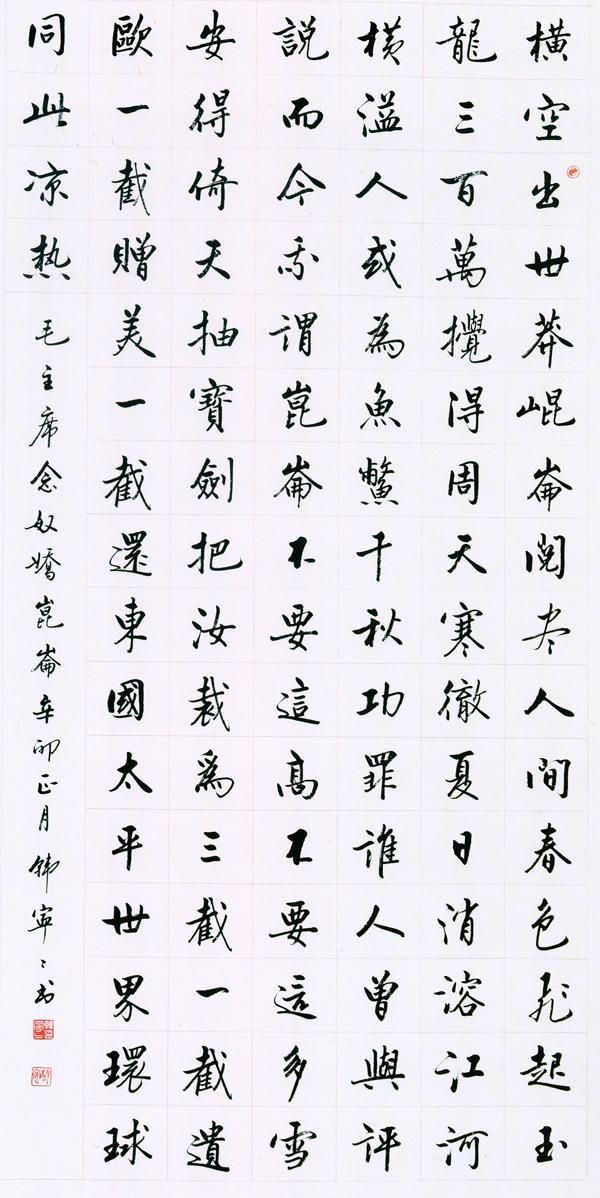 橫空出世莽崐崙閱尽人間春色飛起玉
龍三百萬攪得周天寒徹夏日消溶江河
橫溢人或為魚鱉千秋功罪誰人曾與評
說而今我謂崑崙不要這高不要這多雪
安得倚天抽寶劍把汝裁爲三截一截遺
歐一截贈美一截還東國太平世界環球
同此凉熱
毛主席念奴嬌崑崙辛卯正月韓寧〻书